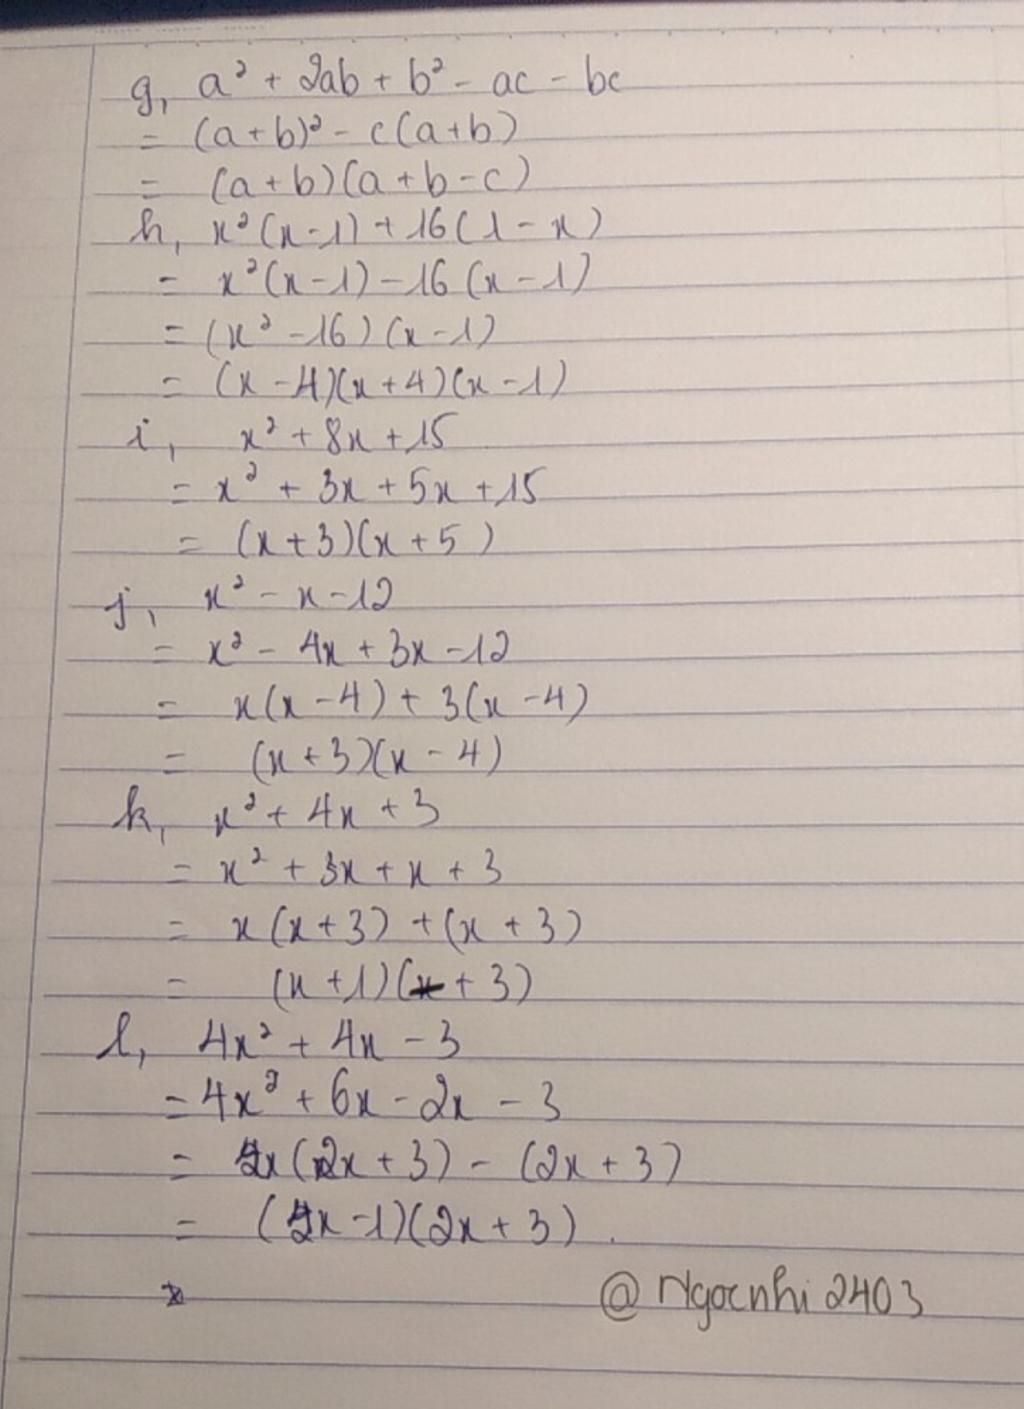 g, a² + 2ab + b² - ac - bc
= (a+b)² - c(a+b)
= (a+b)(a+b-c)
h, x²(x-1) + 16(1-x)
= x²(x-1) - 16(x-1)
= (x²-16)(x-1)
= (x-4)(x+4)(x-1)
i, x² + 8x + 15
= x² + 3x + 5x + 15
= (x+3)(x+5)
j, x² - x - 12
= x² - 4x + 3x - 12
= x(x-4) + 3(x-4)
= (x+3)(x-4)
k, x² + 4x + 3
= x² + 3x + x + 3
= x(x+3) + (x+3)
= (x+1)(x+3)
l, 4x² + 4x - 3
= 4x² + 6x - 2x - 3
= 2x(2x+3) - (2x+3)
= (2x-1)(2x+3).
@Ngocnhi2403